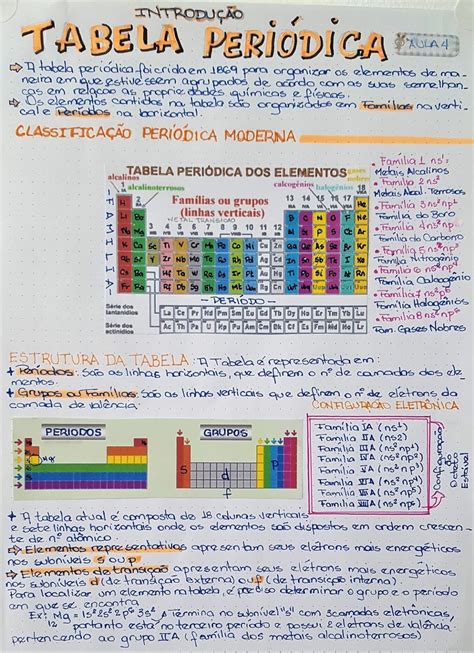 INTRODUÇÃO
TABELA PERIÓDICA
AULA 4
A tabela periódica foi criada em 1869 para organizar os elementos de ma-
neira em que estivessem agrupados de acordo com as suas semelhan-
ças em relação as propriedades químicas e físicas.
Os elementos contidos na tabela são organizados em Famílias na verti-
cal e Períodos na horizontal.
CLASSIFICAÇÃO PERIÓDICA MODERNA
TABELA PERIÓDICA DOS ELEMENTOS
gases nobres
alcalinos
alcalinoterrosos
calcogênios
halogênios
Famílias ou grupos
(linhas verticais)
METAL TRANSIÇÃO
FAMÍLIA
13 14 15 16 17 18
- PERÍODO -
Série dos lantanídios
La Ce Pr Nd Pm Sm Eu Gd Tb Dy Ho Er Tm Yb Lu
Série dos actinídios
Ac Th Pa U Np Pu Am Cm Bk Cf Es Fm Md No Lr
Família 1 ns¹
Metais Alcalinos
Família 2 ns²
Metais Alcal. Terrosos
Família 3 ns² np¹
Família do Boro
Família 4 ns² np²
Família do Carbono
Família 5 ns² np³
Família Nitrogênio
Família 6 ns² np⁴
Família Calcogênio
Família 7 ns² np⁵
Família Halogênios
Família 8 ns² np⁶
Fam. Gases Nobres
ESTRUTURA DA TABELA: A Tabela é representada em:
+ Períodos: São as linhas horizontais, que definem o nº de camadas dos ele-
mentos.
+ Grupos ou Famílias: São as linhas verticais que definem o nº de elétrons da
camada de valência.
CONFIGURAÇÃO ELETRÔNICA
PERIODOS
Mg
GRUPOS
s
d
p
f
Família IA (ns¹)
Família IIA (ns2)
Família IIIA (ns² np¹)
Família IVA (ns² np²)
Família VA (ns² np³)
Família VIA (ns² np⁴)
Família VIIA (ns² np⁵)
Família VIIIA (ns² np⁶)
Configuração
Octeto
Estável
+ A tabela atual é composta de 18 colunas verticais
e sete linhas horizontais onde os elementos são dispostos em ordem crescen-
te de nº atômico.
Elementos representativos apresentam seus elétrons mais energéticos
nos subníveis s ou p
Elementos de transição apresentam seus elétrons mais energéticos
nos subníveis d (de transição externa) ou f (de transição interna).
Para localizar um elemento na tabela, é preciso determinar o grupo e o período
em que se encontra
Ex: Mg = 1s² 2s² 2p⁶ 3s² Termina no subnível "s" com 3 camadas eletrônicas,
12
portanto está no terceiro período e possui 2 elétrons de valência
pertencendo ao grupo IIA (família dos metais alcalinoterrosos)